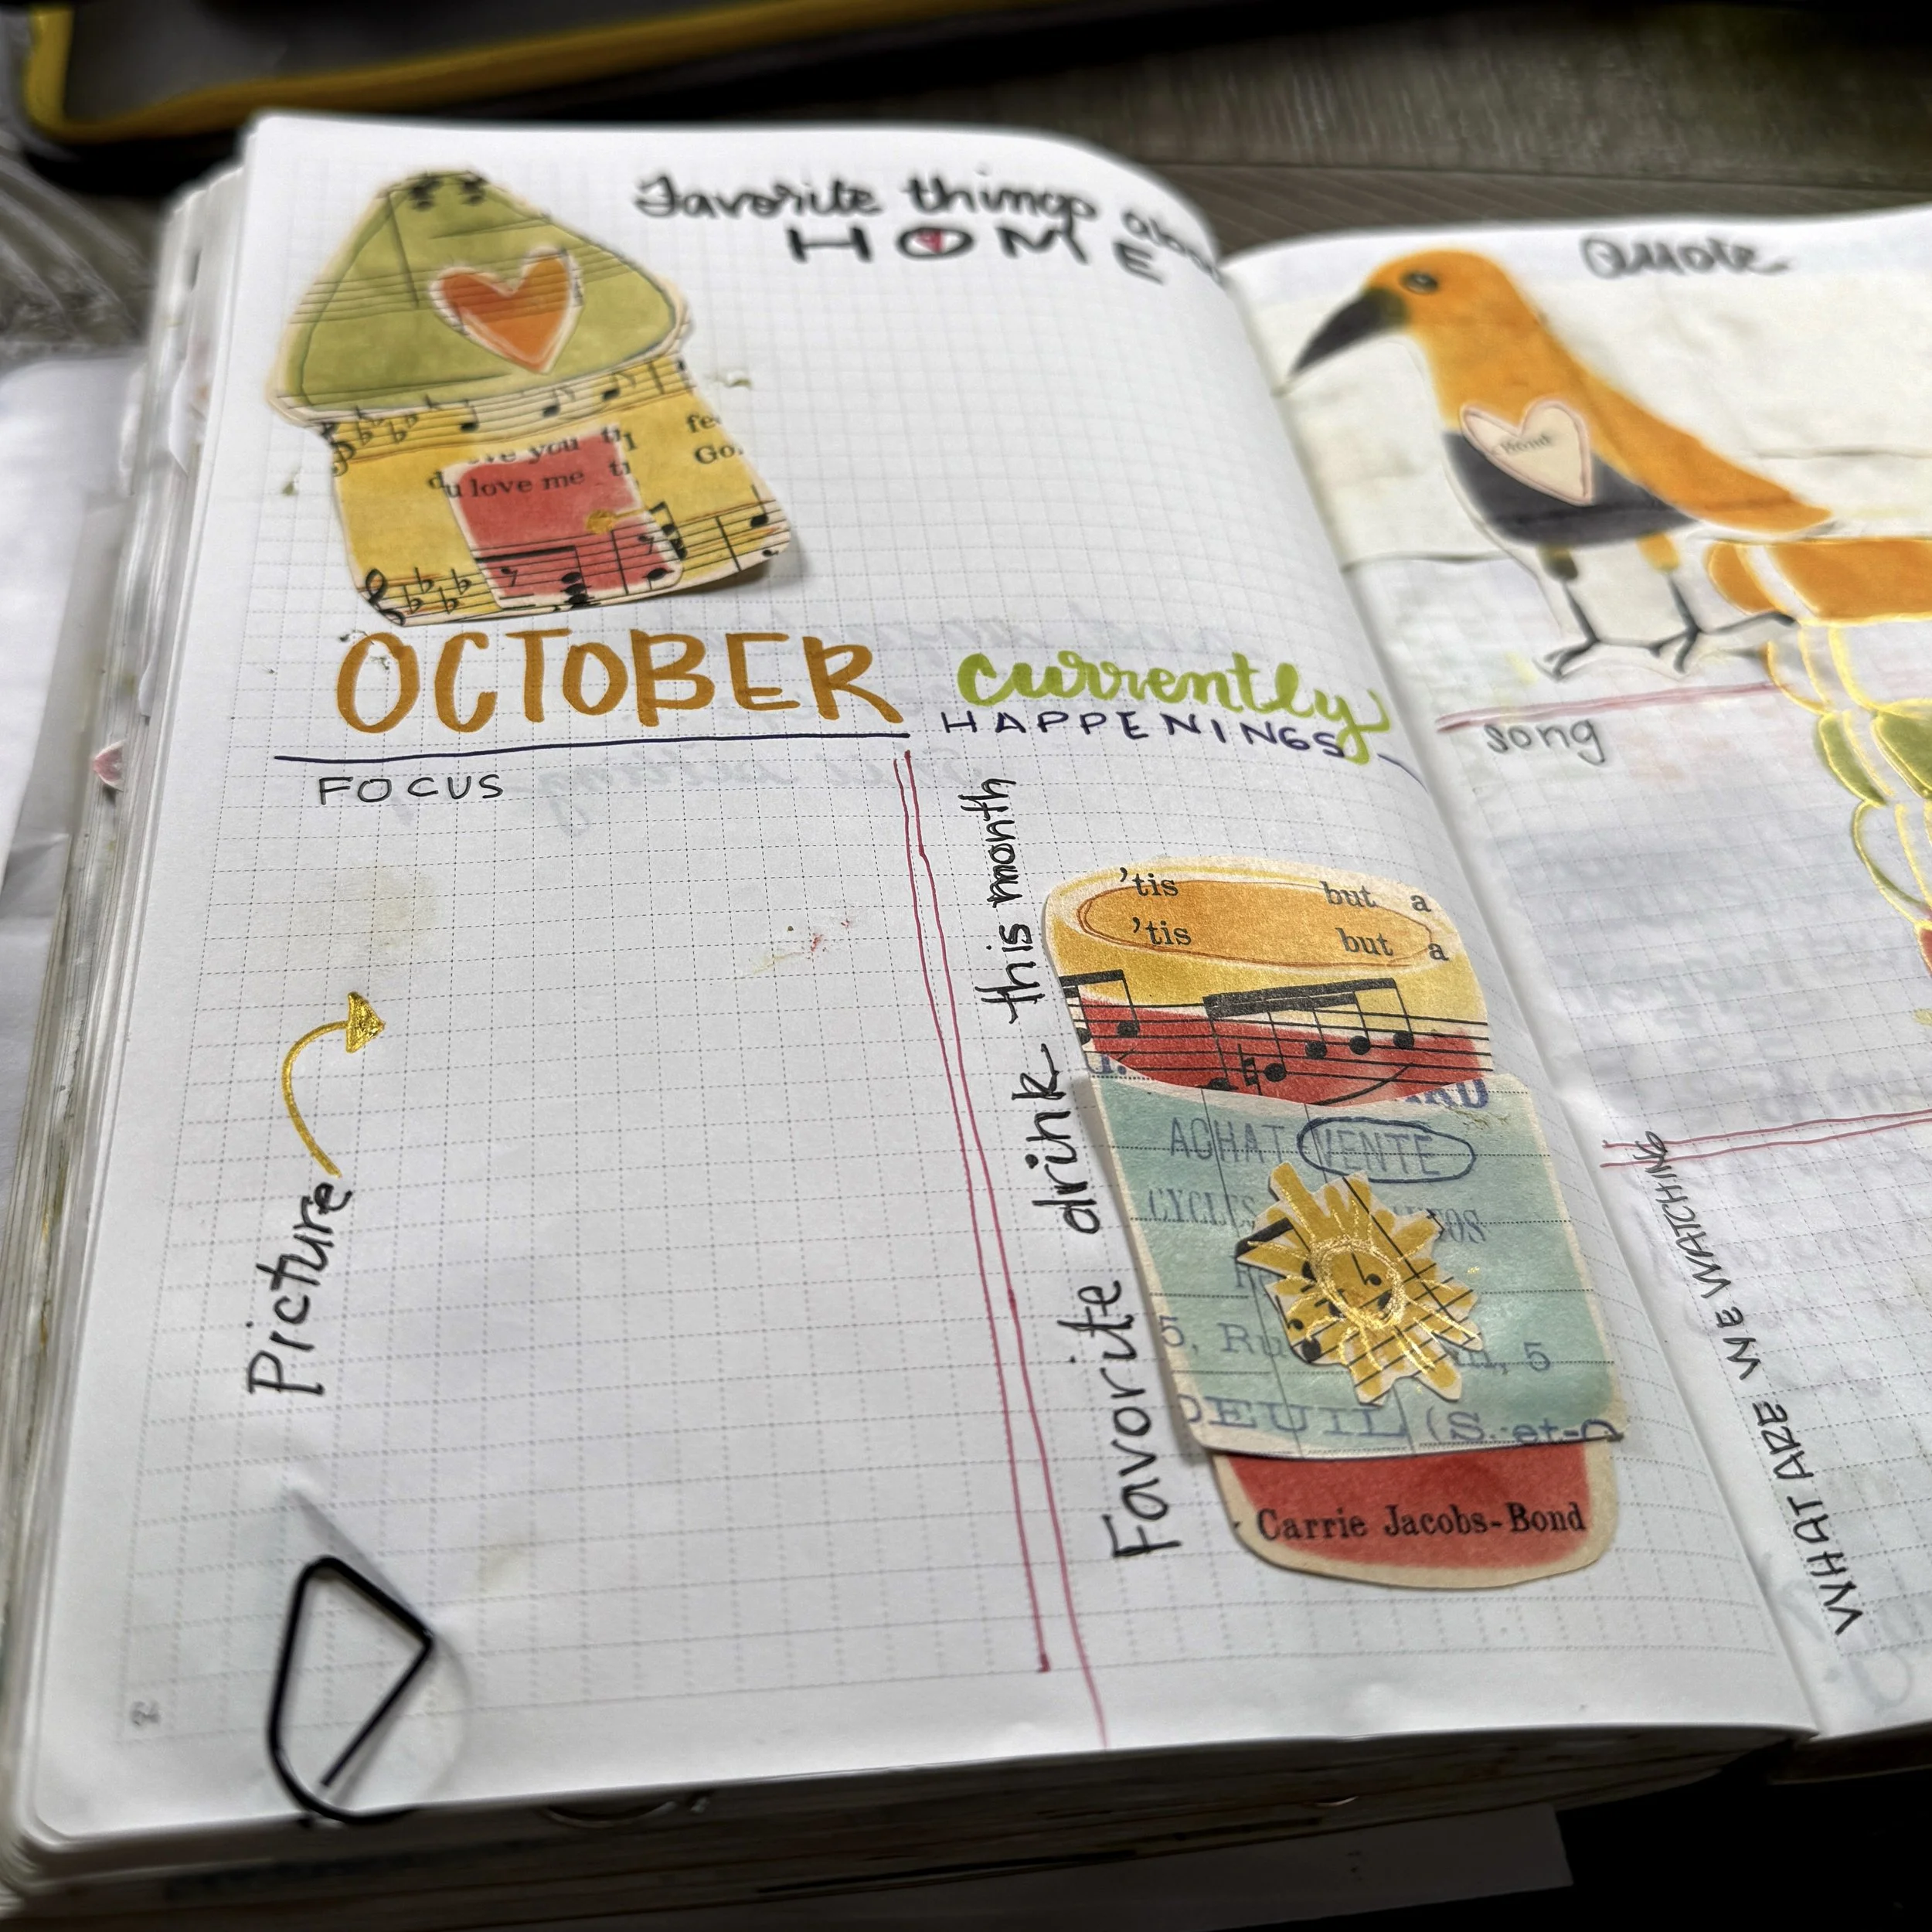 Favorite things
HOME
you
u love me
Go
OCTOBER
currently
HAPPENINGS
FOCUS
Picture
Favorite drink this month
'tis but a
'tis but a
ACHAT VENTE
5, Ru 5
DEUIL (S.-et-O
Carrie Jacobs-Bond
Quote
song
WHAT ARE WE WATCHING